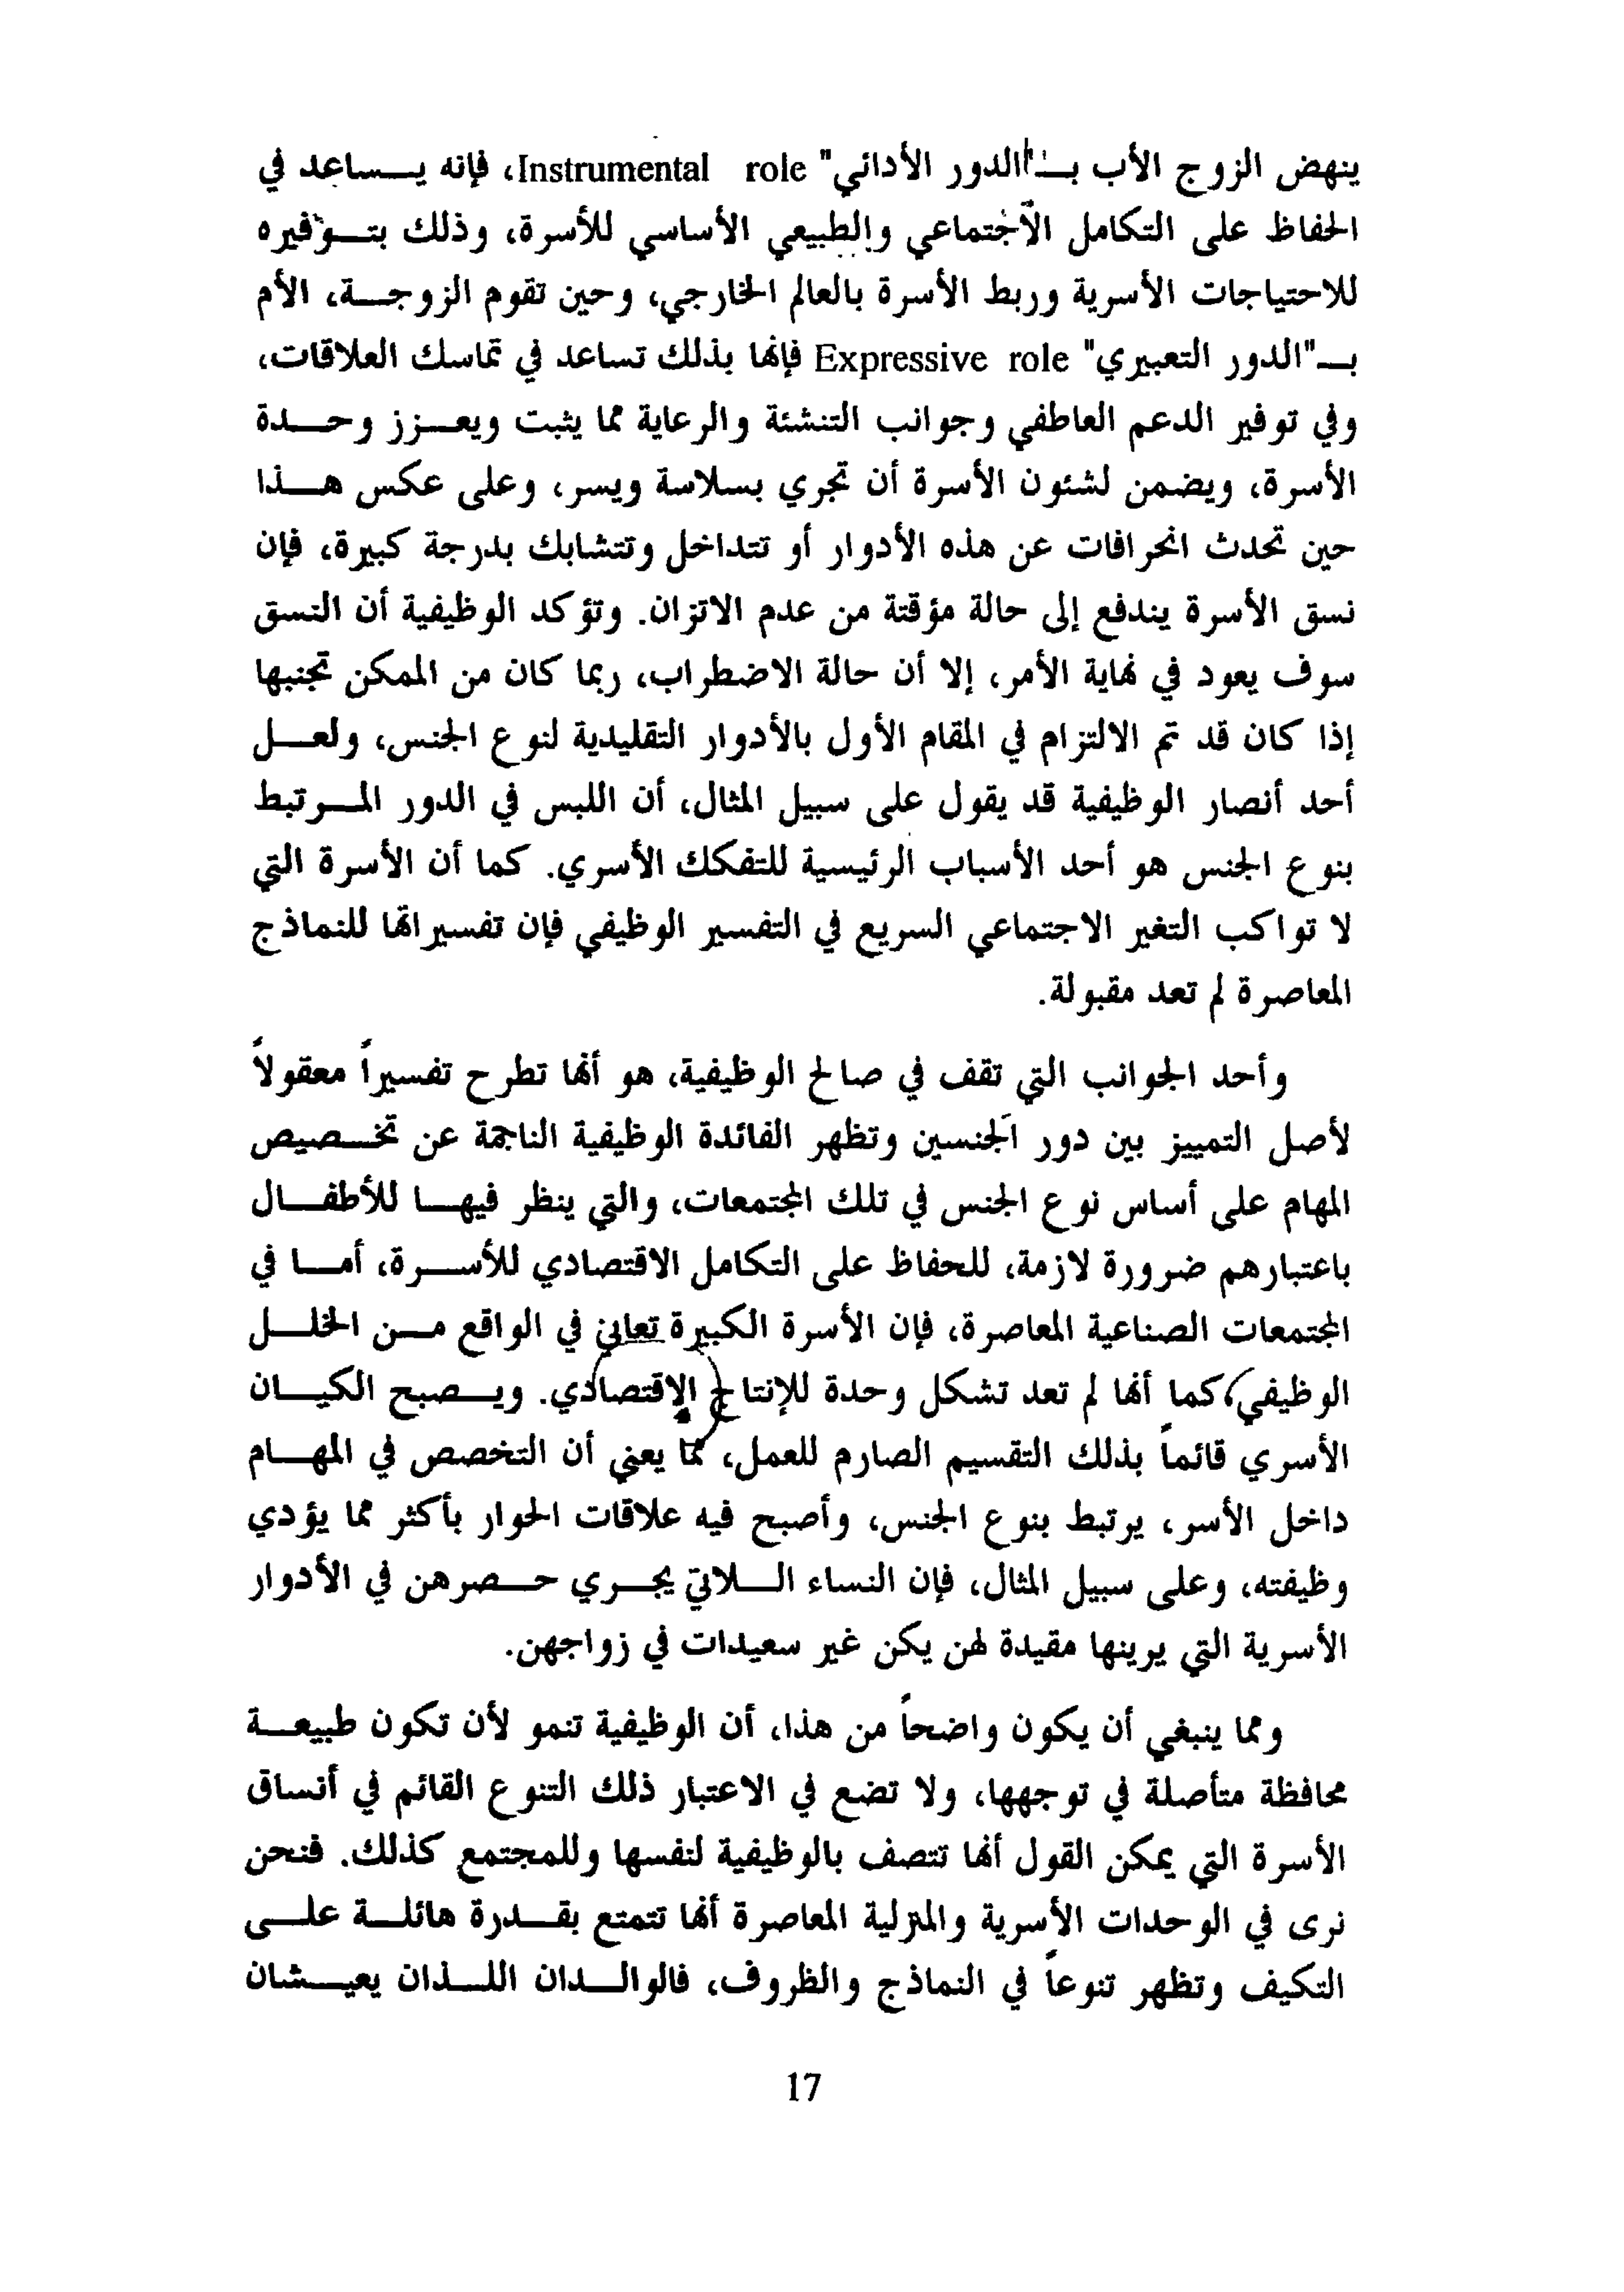 ينهض الزوج الأب بـ"الدور الأدائي" Instrumental role، فإنه يساعد في
الحفاظ على التكامل الاجتماعي والطبيعي الأساسي للأسرة، وذلك بتوفيره
للاحتياجات الأسرية وربط الأسرة بالعالم الخارجي، وحين تقوم الزوجة، الأم
بـ"الدور التعبيري" Expressive role فإنها بذلك تساعد في تماسك العلاقات،
وفي توفير الدعم العاطفي وجوانب التنشئة والرعاية مما يثبت ويعزز وحدة
الأسرة، ويضمن لشئون الأسرة أن تجري بسلاسة ويسر، وعلى عكس هذا
حين تحدث انحرافات عن هذه الأدوار أو تتداخل وتتشابك بدرجة كبيرة، فإن
نسق الأسرة يندفع إلى حالة مؤقتة من عدم الاتزان. وتؤكد الوظيفية أن النسق
سوف يعود في نهاية الأمر، إلا أن حالة الاضطراب، ربما كان من الممكن تجنبها
إذا كان قد تم الالتزام في المقام الأول بالأدوار التقليدية لنوع الجنس، ولعل
أحد أنصار الوظيفية قد يقول على سبيل المثال، أن اللبس في الدور المرتبط
بنوع الجنس هو أحد الأسباب الرئيسية للتفكك الأسري. كما أن الأسرة التي
لا تواكب التغير الاجتماعي السريع في التفسير الوظيفي فإن تفسيراتها للنماذج
المعاصرة لم تعد مقبولة.
وأحد الجوانب التي تقف في صالح الوظيفية، هو أنها تطرح تفسيراً معقولاً
لأصل التمييز بين دور الجنسين وتظهر الفائدة الوظيفية الناجمة عن تخصيص
المهام على أساس نوع الجنس في تلك المجتمعات، والتي ينظر فيها للأطفال
باعتبارهم ضرورة لازمة، للحفاظ على التكامل الاقتصادي للأسرة، أما في
المجتمعات الصناعية المعاصرة، فإن الأسرة الكبيرة تعاني في الواقع من الخلل
الوظيفي، كما أنها لم تعد تشكل وحدة للإنتاج الإقتصادي. ويصبح الكيان
الأسري قائماً بذلك التقسيم الصارم للعمل، مما يعني أن التخصص في المهام
داخل الأسر، يرتبط بنوع الجنس، وأصبح فيه علاقات الحوار بأكثر مما يؤدي
وظيفته، وعلى سبيل المثال، فإن النساء اللاتي يجري حصرهن في الأدوار
الأسرية التي يرينها مقيدة لهن يكن غير سعيدات في زواجهن.
ومما ينبغي أن يكون واضحاً من هذا، أن الوظيفية تنمو لأن تكون طبيعة
محافظة متأصلة في توجهها، ولا تضع في الاعتبار ذلك التنوع القائم في أنساق
الأسرة التي يمكن القول أنها تتصف بالوظيفية لنفسها وللمجتمع كذلك. فنحن
نرى في الوحدات الأسرية والمنزلية المعاصرة أنها تتمتع بقدرة هائلة على
التكيف وتظهر تنوعاً في النماذج والظروف، فالوالدان اللذان يعيشان
17